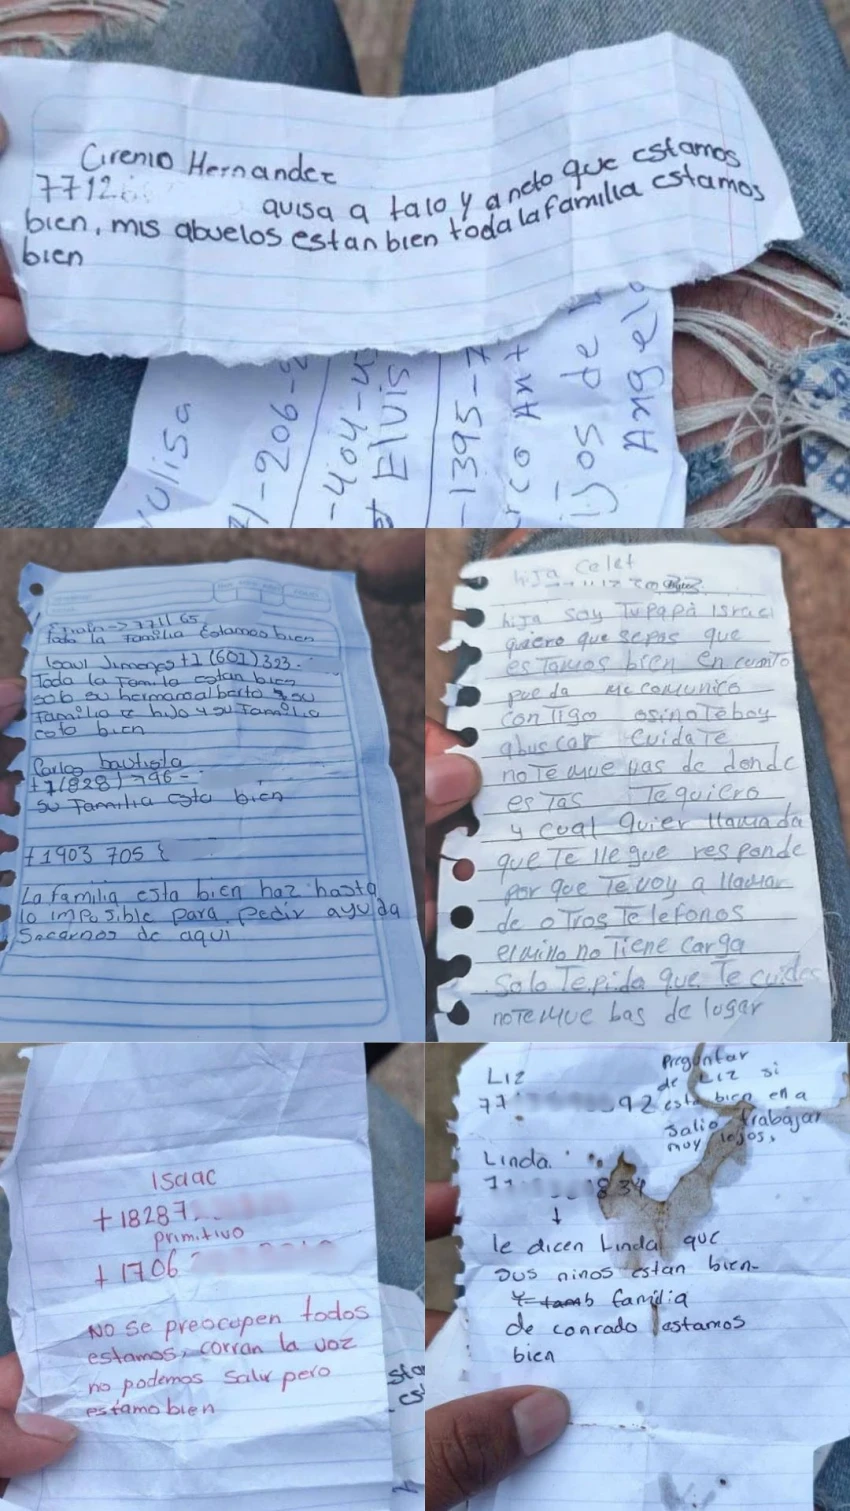 Cirenio Hernandez
7712
avisa a talo y aneto que estamos
bien, mis abuelos estan bien toda la familia estamos
bien
-206-
-404-4
Elvis
-1395-7
rco Ant
ijos de
Angel
Toda la Familia Estamos bien
Jimenes +1 (601) 323-
Toda la Familia estan bien
su hermano alberto y su
Familia e hijo y su Familia
esta bien
Carlos bautista
+1 (828) 796-
su Familia esta bien
+1903 705
La familia esta bien haz hasta
lo imposible para pedir ayuda
Sacarnos de aqui
hija Celet
hija soy Tu papá Israel
quiero que sepas que
esTamos bien en cuanto
pueda me comunico
conTigo osino Te boy
abuscar cuidaTe
no Te muevas de donde
esTas Te quiero
y cual quier llamada
que Te lle gue responde
por que Te voy a llamar
de oTros Telefonos
el mio no Tiene carga
Solo Te pido que Te cuides
no Te mue bas de lugar
Isaac
+18287
primitivo
+1706
NO se preocupen todos
estamos, corran la voz
no podemos salir pero
estamo bien
Liz
77 92
Preguntar
de Liz si
esta bien ella
salio trabajar
muy lejos,
Linda
834
le dicen Linda que
sus ninos estan bien
familia
de conrado estamos
bien